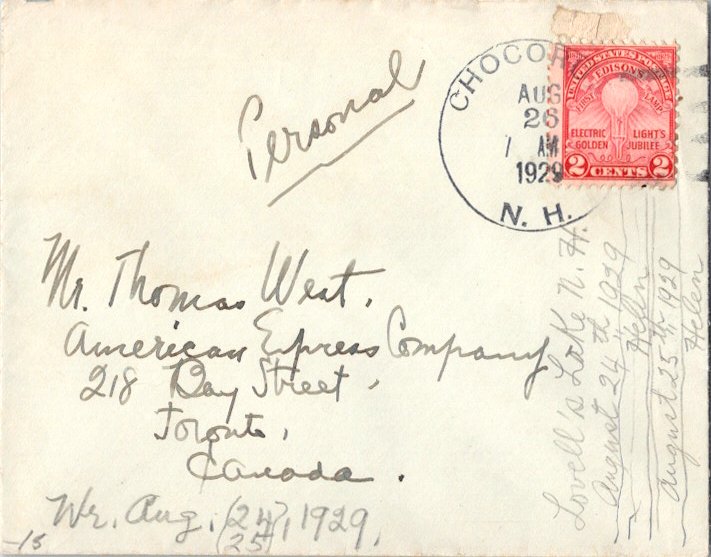 Personal
CHOCOR
AUG
26
7 AM
1929
N. H.
UNITED STATES POSTAGE
EDISON'S
FIRST LAMP
ELECTRIC LIGHT'S
GOLDEN JUBILEE
2 CENTS 2
Mr. Thomas West.
American Express Company,
218 Bay Street,
Toronto,
Canada.
Wr. Aug. (24), 1929.
(25)
-15
Lovell's Lake N. H.
August 24th 1929
Helen
August 25th, 1929
Helen